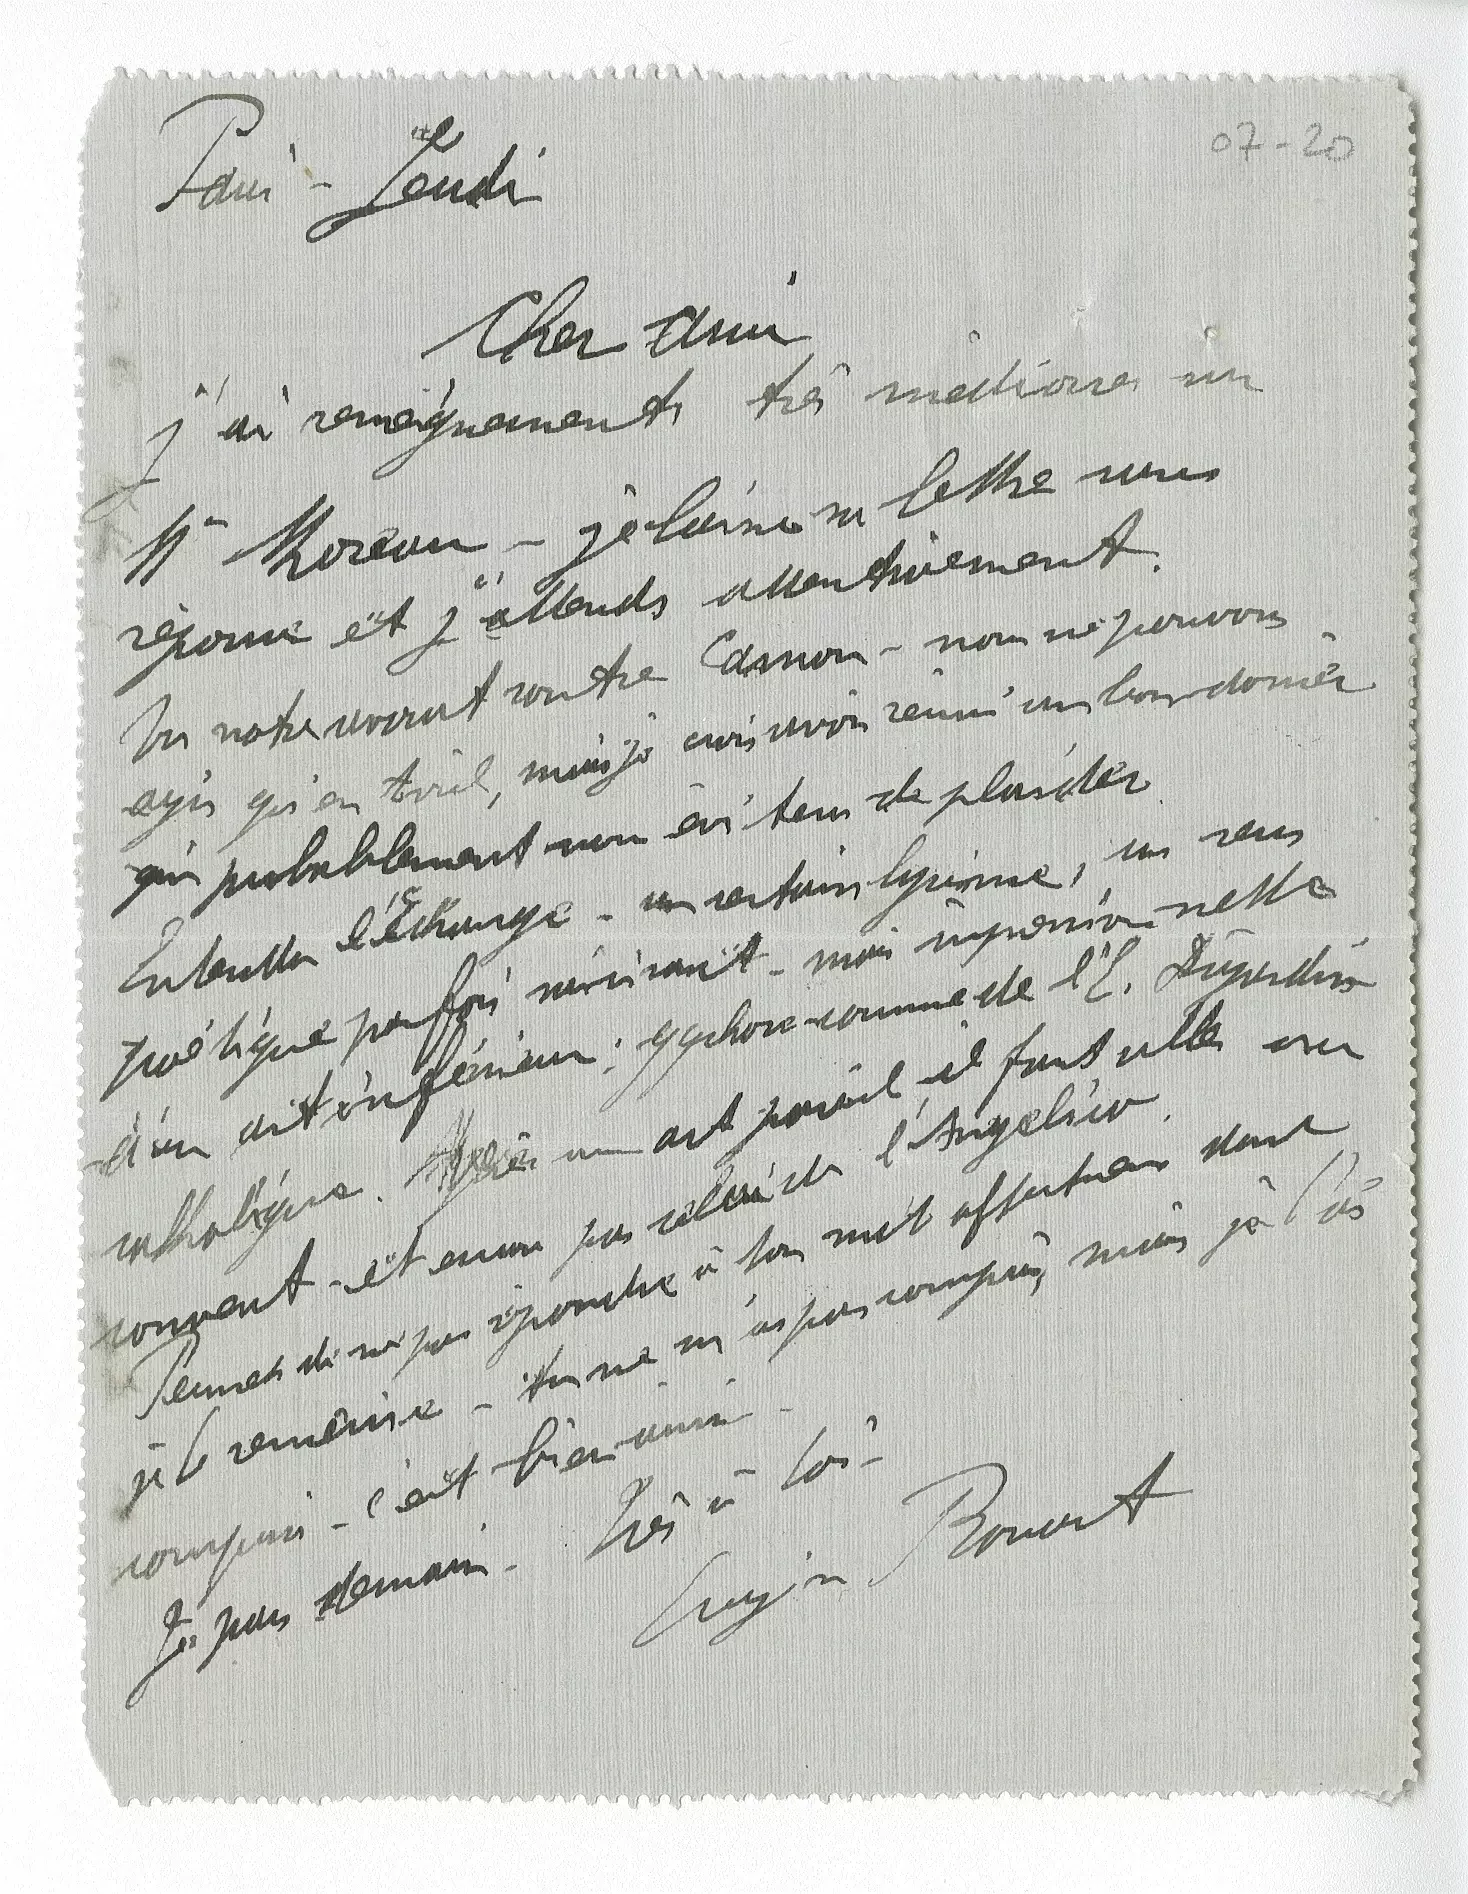 07-20
Paris - Jeudi
Cher ami
j'ai renseignements très médiocres sur
Mr Moreau - je laisse sa lettre sans
réponse et j'attends attentivement.
Vu notre avocat contre Casson - nous ne pouvons
agir qu'en Avril, mais je crois avoir réuni un bon dossier
qui probablement nous évitera de plaider
Entendu l'Échange - un certain lyrisme, un sens
poétique parfois ravissant - mais impression nette
d'un art inférieur : comme de l'E. Dujardin
catholique. Après un art pareil, il faut aller au
couvent - et encore pas celui de l'Angelico.
Permets de ne pas répondre à ton mot affectueux dont
je te remercie - tu ne m'as pas compris, mais je t'ai
compris - c'est bien ainsi -
Je pars demain - Très à toi -
Eugène Rouart